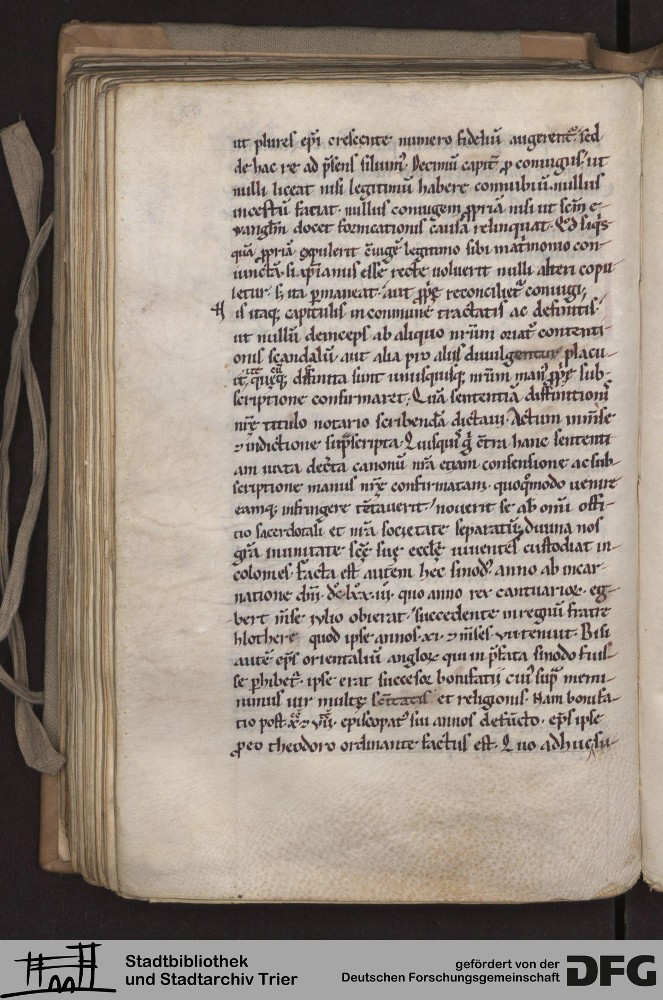 ut plures epi crescente numero fideliū augerent̄. sed
de hac re ad p̄sens silum̄. Decimū capit̄ ꝓ coniugiis. ut
nulli liceat nisi legitimū habere connubiū. nullus
incestū faciat. nullus coniugem ꝓpriā nisi ut scm̄ e-
vangłm docet fornicationis causa relinquat. Qd̄ siq̄s
quā ꝓpriā expulerit c̄iugē legitimo sibi matm̄onio con-
iunctā. si xp̄ianus esse recte voluerit nulli alteri copu-
letur. s; ita ꝑmaneat. aut ꝓprię reconciliet̄ coniugi;
H is itaq; capitulis in commune tractatis ac definitis.
ut nullū deinceps ab aliquo nr̄ūm oriat̄ contenti-
onis scandalū. aut alia pro aliis divulgentur placu-
it. ut quęq; diffinita sunt unusquisq; nr̄ūm manꝰ ꝓprię sub-
scriptione confirmaret; Quā sententiā diffinitionis
nr̄ę titulo notario scribendā dictavi. Actum in m̄se
⁊ indictione sup̄scripta. Quisquis ḡ c̄tra hanc sententi-
am iuxta decreta canonū nr̄a etiam consensione ac sub-
scriptione manus nr̄ę confirmatam. quoq̄modo venire
eamq; infringere tētaverit. noverit se ab om̄i offi-
cio sacerdotali et nr̄a societate separatū; divina nos
gr̄a in unitate scę suę ecclę viventes custodiat in-
colomes. Facta est autem hec sinodꝰ anno ab incar-
natione dn̄i. dc̄. lxx. iii. quo anno rex cantuariorꝝ eg-
bert m̄se iulio obierat. succedente in regnū fratre
hlothere quod ipse annos. xi. ⁊ m̄ses vii tenuit. Bisi
autē eps̄ orientaliū anglorꝝ qui in p̄fata sinodo fuis-
se ꝑhibet̄. ipse erat successor bonifatii cuiꝰ sup̄ memi-
nimus vir multę sc̄itatis et religionis. Nam bonifa-
tio post x̄ ⁊ vii. episcopatꝰ sui annos defūcto. eps̄ ipse
ꝓ eo theodoro ordinante factus est. Quo adhuc su-
Stadtbibliothek
und Stadtarchiv Trier
gefördert von der
Deutschen Forschungsgemeinschaft
DFG